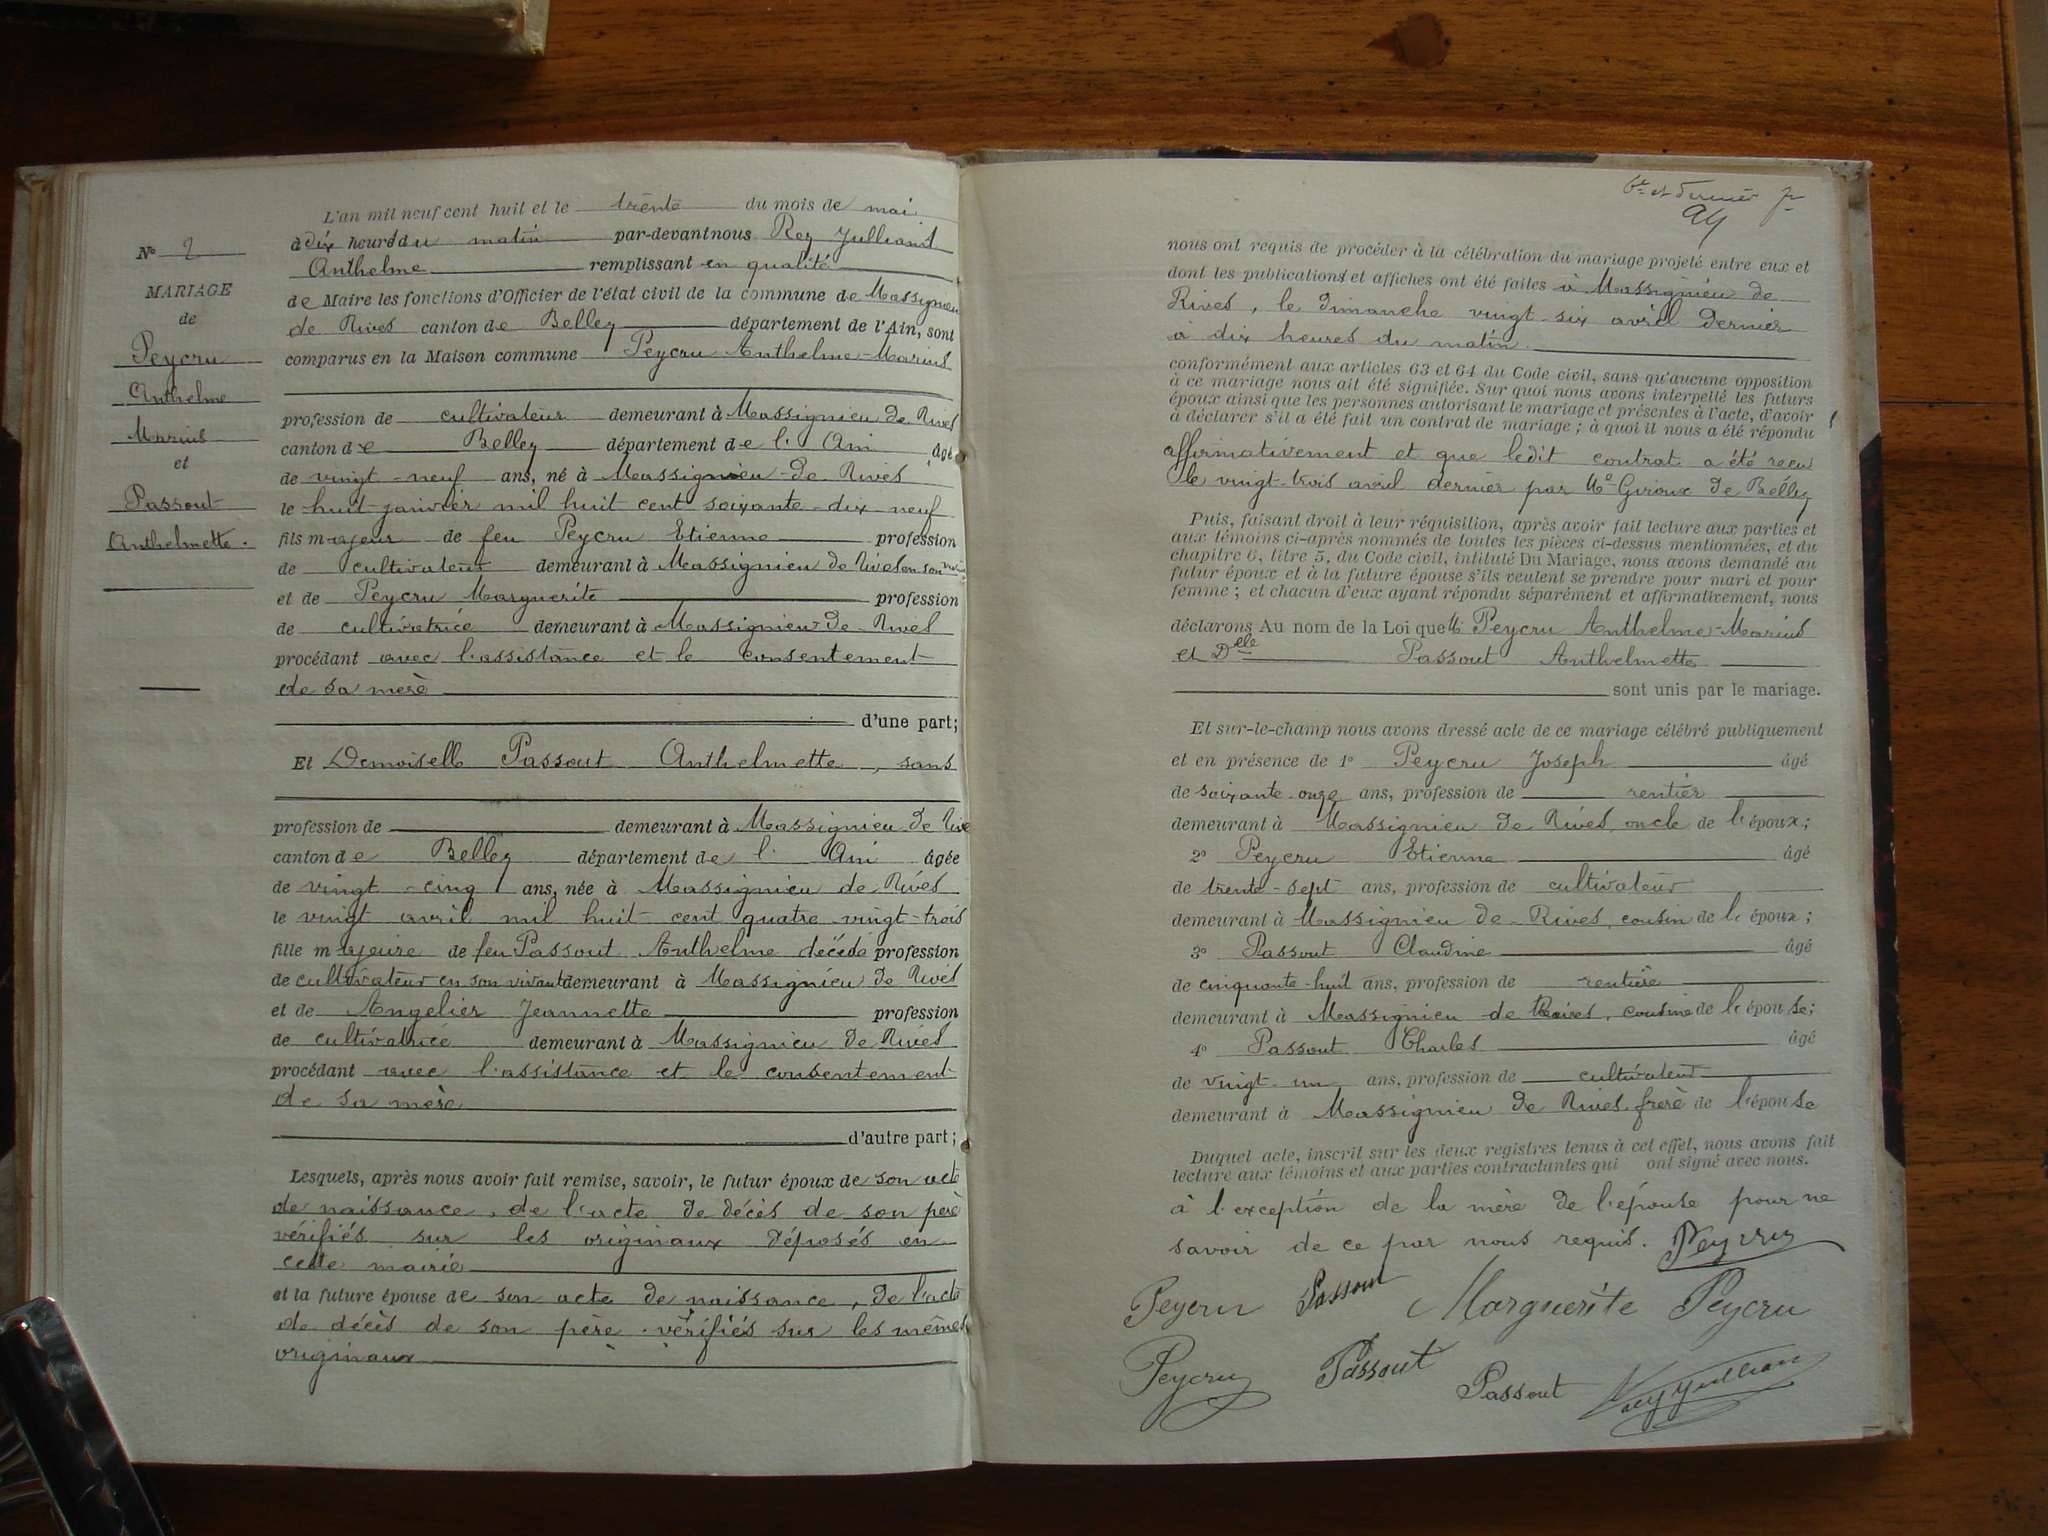 N° 2
MARIAGE
de
Peycru
Anthelme
Marius
et
Passout
Anthelmette.
L'an mil neuf cent huit et le trente du mois de mai
à dix heures du matin par-devant nous Rey Julliand
Anthelme remplissant en qualité
de Maire les fonctions d'Officier de l'état civil de la commune de Massignieu
de Rives canton de Belley département de l'Ain, sont
comparus en la Maison commune Peycru Anthelme-Marius
profession de cultivateur demeurant à Massignieu de Rives
canton de Belley département de l'Ain âgé
de vingt-neuf ans, né à Massignieu-de Rives
le huit janvier mil huit cent soixante-dix-neuf
fils majeur de feu Peycru Etienne profession
de cultivateur demeurant à Massignieu de Rives en son vivant
et de Peycru Marguerite profession
de cultivatrice demeurant à Massignieu de Rives
procédant avec l'assistance et le consentement
de sa mère
d'une part;
Et Demoiselle Passout Anthelmette, sans
profession de demeurant à Massignieu de Rive
canton de Belley département de l'Ain âgée
de vingt-cinq ans, née à Massignieu de Rives
le vingt avril mil huit cent quatre-vingt-trois
fille majeure de feu Passout Anthelme décédé profession
de cultivateur en son vivant demeurant à Massignieu de Rives
et de Angelier Jeannette profession
de cultivatrice demeurant à Massignieu de Rives
procédant avec l'assistance et le consentement
de sa mère
d'autre part;
Lesquels, après nous avoir fait remise, savoir, le futur époux de son acte
de naissance, de l'acte de décès de son père
vérifiés sur les originaux déposés en
cette mairie
et la future épouse de son acte de naissance, de l'acte
de décès de son père vérifiés sur les mêmes
originaux
6e et dernier
nous ont requis de procéder à la célébration du mariage projeté entre eux et
dont les publications et affiches ont été faites à Massignieu de
Rives, le dimanche vingt-six avril dernier
à dix heures du matin.
conformément aux articles 63 et 64 du Code civil, sans qu'aucune opposition
à ce mariage nous ait été signifiée. Sur quoi nous avons interpellé les futurs
époux ainsi que les personnes autorisant le mariage et présentes à l'acte, d'avoir
à déclarer s'il a été fait un contrat de mariage; à quoi il nous a été répondu
affirmativement et que ledit contrat a été reçu
le vingt-trois avril dernier par Me Giroux de Belley
Puis, faisant droit à leur réquisition, après avoir fait lecture aux parties et
aux témoins ci-après nommés de toutes les pièces ci-dessus mentionnées, et du
chapitre 6, titre 5, du Code civil, intitulé Du Mariage, nous avons demandé au
futur époux et à la future épouse s'ils veulent se prendre pour mari et pour
femme; et chacun d'eux ayant répondu séparément et affirmativement, nous
déclarons Au nom de la Loi que Mr Peycru Anthelme-Marius
et Delle Passout Anthelmette
sont unis par le mariage.
Et sur-le-champ nous avons dressé acte de ce mariage célébré publiquement
et en présence de 1° Peycru Joseph âgé
de soixante-onze ans, profession de rentier
demeurant à Massignieu de Rives, oncle de l'époux;
2° Peycru Etienne âgé
de trente-sept ans, profession de cultivateur
demeurant à Massignieu de-Rives, cousin de l'époux;
3° Passout Claudine âgé
de cinquante-huit ans, profession de rentière
demeurant à Massignieu de Rives, cousine de l'épouse;
4° Passout Charles âgé
de vingt-un ans, profession de cultivateur
demeurant à Massignieu de Rives frère de l'épouse
Duquel acte, inscrit sur les deux registres tenus à cet effet, nous avons fait
lecture aux témoins et aux parties contractantes qui ont signé avec nous.
à l'exception de la mère de l'épouse pour ne
savoir de ce par nous requis. Peycru
Peycru Passout Marguerite Peycru
Peycru Passout Passout Rey Jullian